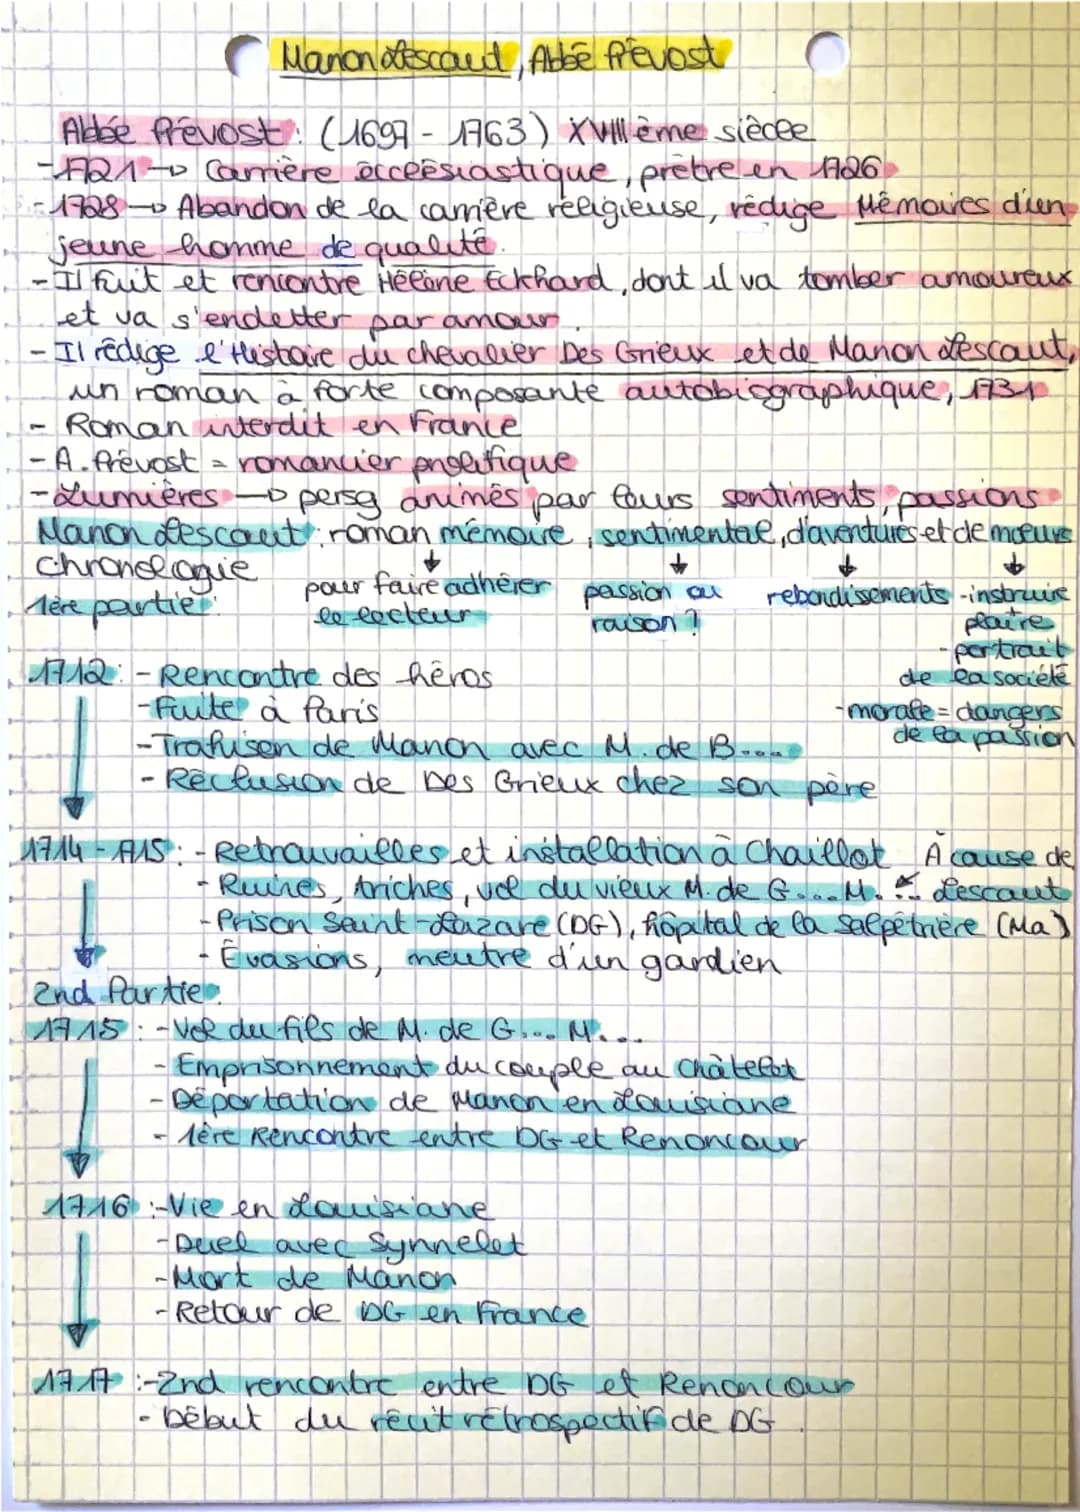 Manon Lescaut, Abbé Prévost
Abbé Prévost : (1697 - 1763) XVIIIème siècle
- 1721 → Carrière ecclésiastique, prêtre en 1726
- 1728 → Abandon de la carrière religieuse, rédige Mémoires d'un
jeune homme de qualité.
- Il fuit et rencontre Hélène Eckhard, dont il va tomber amoureux
et va s'endetter par amour.
- Il rédige l'Histoire du chevalier Des Grieux et de Manon Lescaut,
un roman à forte composante autobiographique, 1731
- Roman interdit en France
- A. Prévost = romancier prolifique
- Lumières → persg animés par leurs sentiments, passions
Manon Lescaut : roman mémoire, sentimental, d'aventures et de mœurs
Chronologie
↓ ↓ ↓ ↓
pour faire adhérer passion ou rebondissements - instruire
1ère partie :
le lecteur raison ? plaire
- portrait
1712 : - Rencontre des héros
de la société
- Fuite à Paris
- morale = dangers
de la passion
- Trahison de Manon avec M. de B....
- Réclusion de Des Grieux chez son père
1714 - A15 : - Retrouvailles et installation à Chaillot À cause de
- Ruines, triches, vol du vieux M. de G.... M. ... ↙ Lescaut
- Prison Saint-Lazare (DG), hôpital de la Salpêtrière (Ma)
- Évasions, meutre d'un gardien
2nd Partie :
1715 : - Vol du fils de M. de G.... M....
- Emprisonnement du couple au Châtelet
- Déportation de Manon en Louisiane
- 1ère Rencontre entre DG et Renoncour
1716 : - Vie en Louisiane
- Duel avec Synnelet
- Mort de Manon
- Retour de DG en France
1717 : - 2nd rencontre entre DG et Renoncour
- Début du récit rétrospectif de DG.